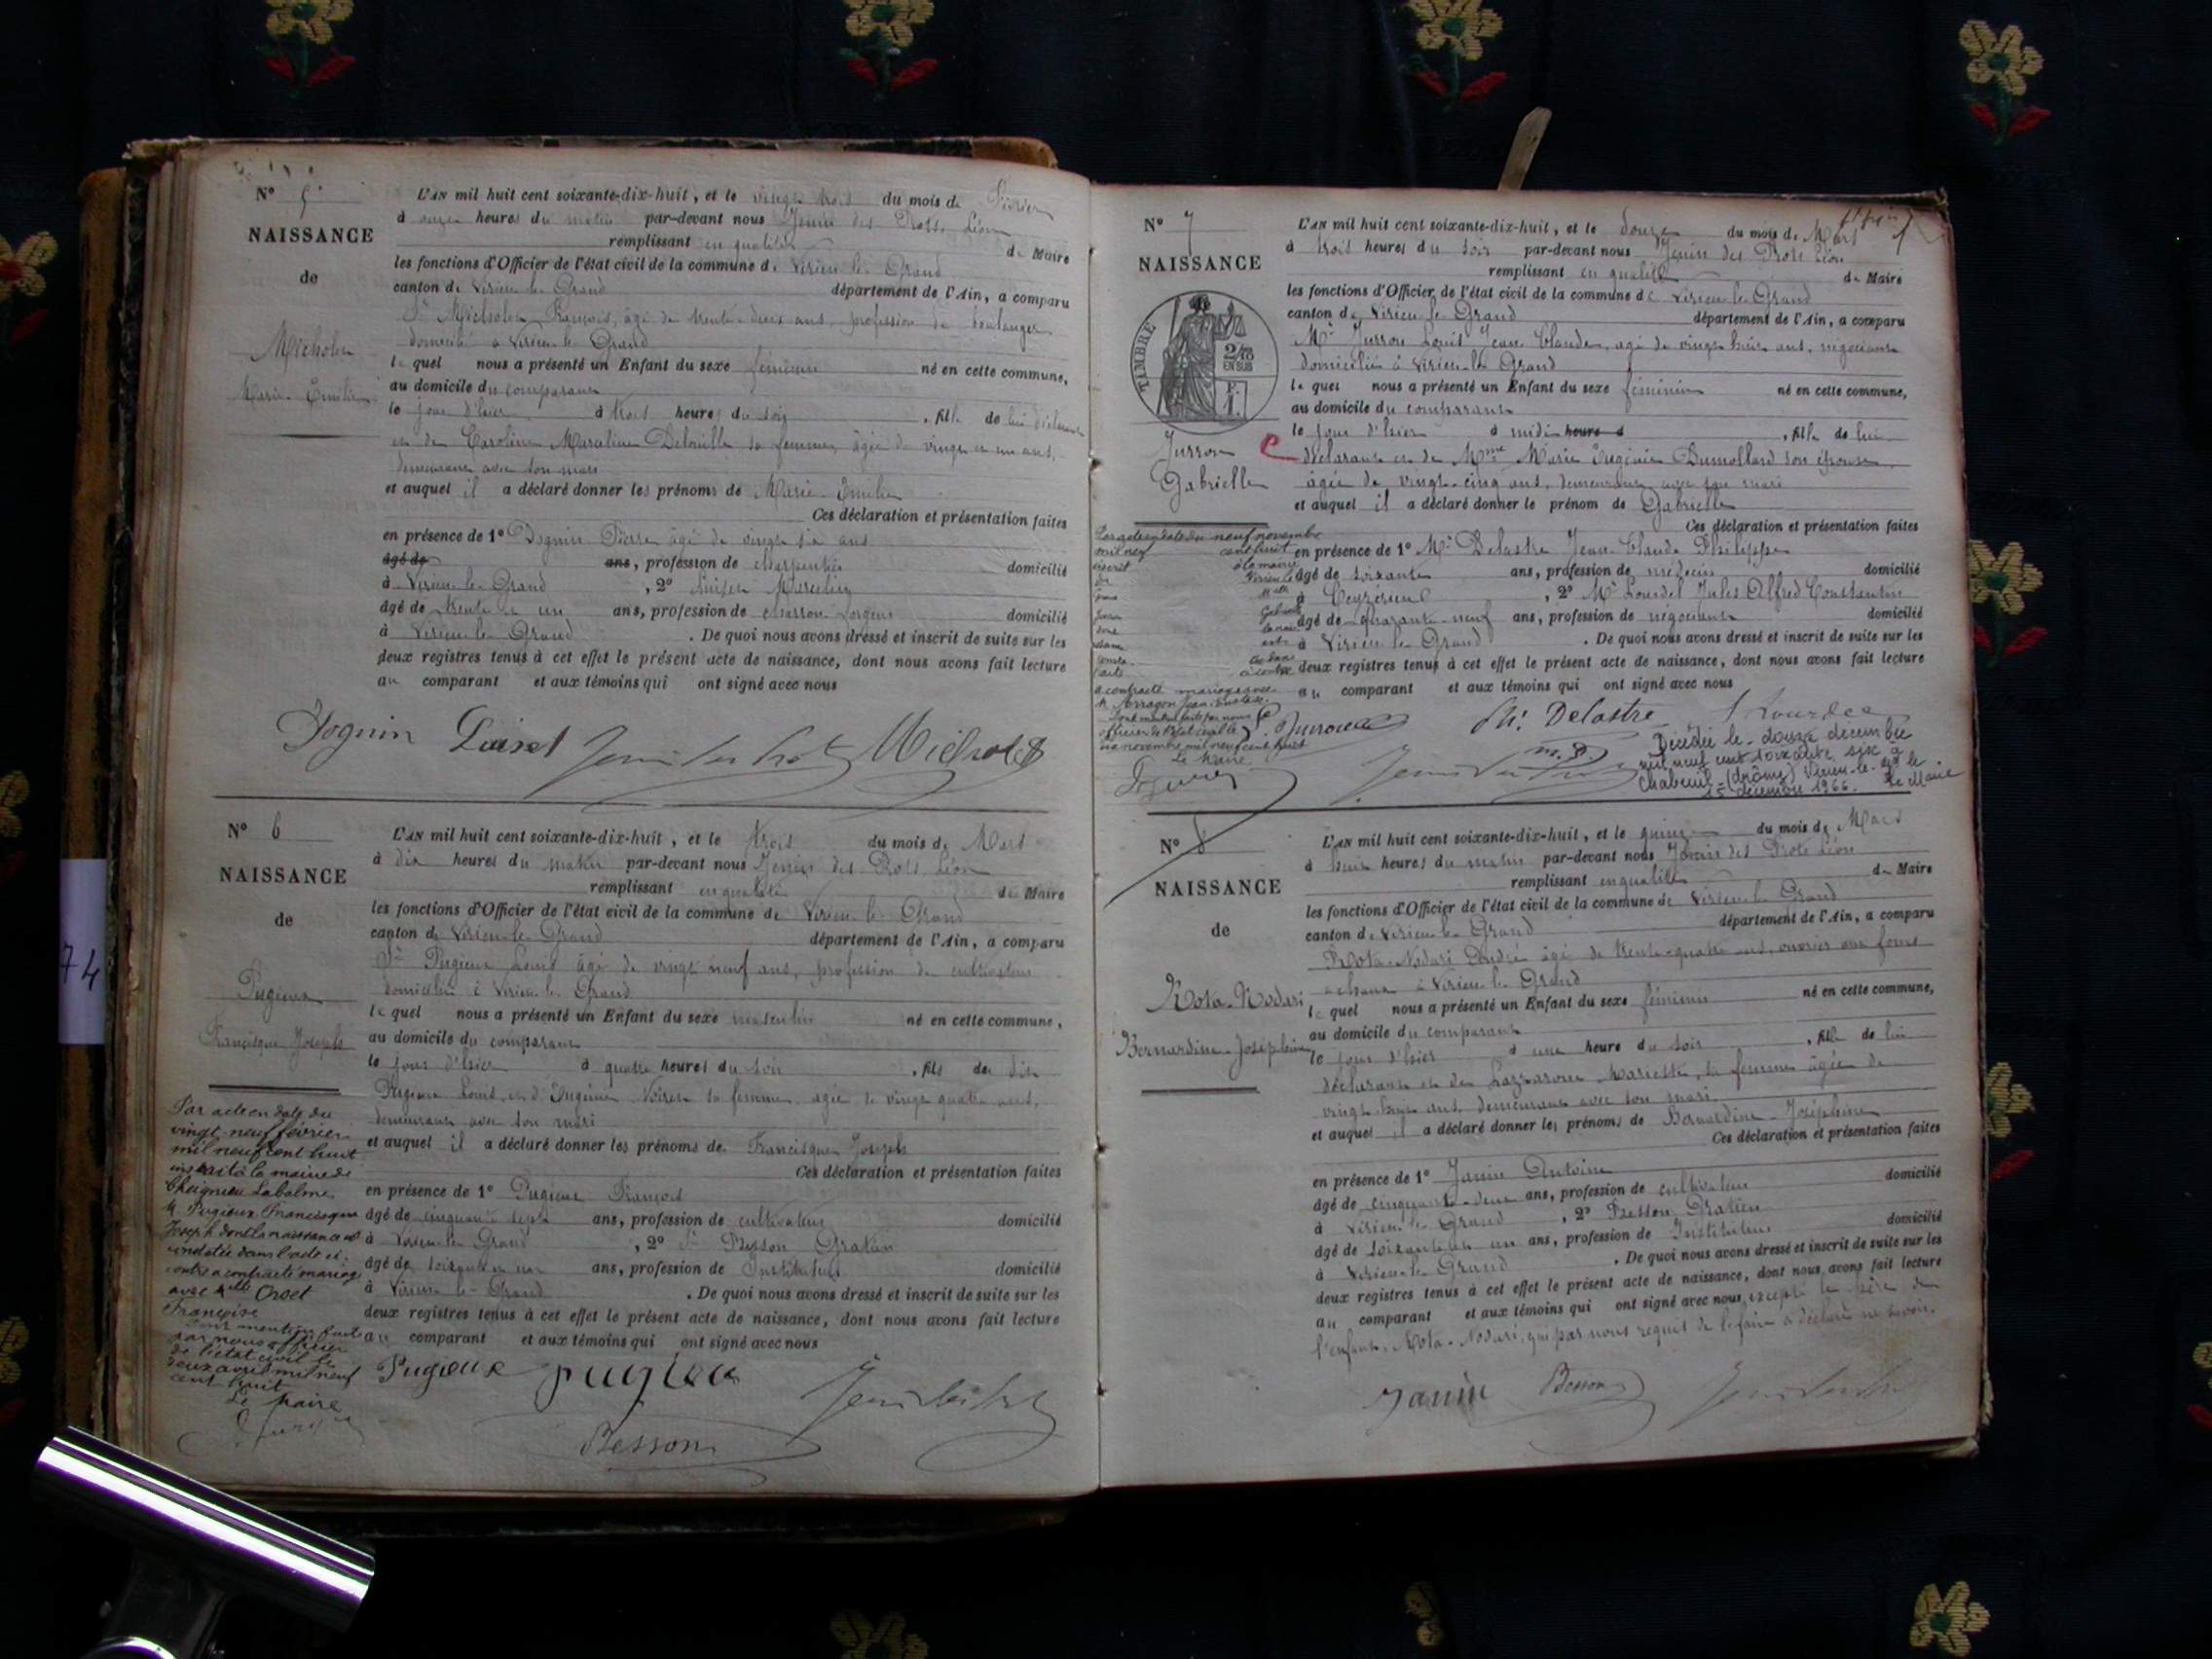 N° 5
NAISSANCE
de
Micholet
Marie-Emilie
L'AN mil huit cent soixante-dix-huit, et le vingt trois du mois de Février
à onze heures du matin par-devant nous Jenin des Prots, Léon
remplissant en qualité de Maire
les fonctions d'Officier de l'état civil de la commune de Virieu-le-Grand
canton de Virieu-le-Grand département de l'Ain, a comparu
Sr Micholet François, âgé de trente-deux ans, profession de boulanger
domicilié à Virieu-le-Grand
lequel nous a présenté un Enfant du sexe féminin né en cette commune,
au domicile du comparant
le jour d'hier à trois heures du soir, fille de lui déclarant
et de Caroline Marceline sa femme, âgée de vingt et un ans,
demeurant avec son mari
et auquel il a déclaré donner les prénoms de Marie-Emilie
Ces déclaration et présentation faites
en présence de 1° Joguin Pierre âgé de vingt six ans
âgé de ans, profession de charpentier domicilié
à Virieu-le-Grand, 2° Luiset Marcelin
âgé de trente et un ans, profession de charron-forgeur domicilié
à Virieu-le-Grand. De quoi nous avons dressé et inscrit de suite sur les
deux registres tenus à cet effet le présent acte de naissance, dont nous avons fait lecture
au comparant et aux témoins qui ont signé avec nous
Joguin Luiset Jenin des Prots Micholet
N° 6
NAISSANCE
de
Pugieux
Francisque Joseph
L'AN mil huit cent soixante-dix-huit, et le trois du mois de Mars
à dix heures du matin par-devant nous Jenin des Prots, Léon
remplissant en qualité de Maire
les fonctions d'Officier de l'état civil de la commune de Virieu-le-Grand
canton de Virieu-le-Grand département de l'Ain, a comparu
Sr Pugieux Louis âgé de vingt neuf ans, profession de cultivateur
domicilié à Virieu-le-Grand
lequel nous a présenté un Enfant du sexe masculin né en cette commune,
au domicile du comparant
le jour d'hier à quatre heures du soir, fils de dit
Pugieux Louis, et d'Eugénie sa femme, âgée de vingt quatre ans,
demeurant avec son mari
et auquel il a déclaré donner les prénoms de Francisque Joseph
Ces déclaration et présentation faites
en présence de 1° Pugieux François
âgé de cinquante sept ans, profession de cultivateur domicilié
à Virieu-le-Grand, 2° Sr Besson Gratien
âgé de soixante et un ans, profession de Instituteur domicilié
à Virieu-le-Grand. De quoi nous avons dressé et inscrit de suite sur les
deux registres tenus à cet effet le présent acte de naissance, dont nous avons fait lecture
au comparant et aux témoins qui ont signé avec nous
Pugieux pugieux Jenin des Prots
Besson
Par acte en date du
vingt-neuf février
mil neuf cent huit
inscrit à la mairie de
Cheignieu Labalme,
M. Pugieux Francisque
Joseph dont la naissance est
constatée dans l'acte ci-
contre a contracté mariage
avec Melle Croet
Françoise
Dont mention faite
par nous officier
de l'état civil le
deux avril mil neuf
cent huit
Le Maire
74
N° 7
NAISSANCE
TIMBRE
2/10
EN SUS
Jurron
Gabrielle
L'AN mil huit cent soixante-dix-huit, et le douze du mois de Mars
à trois heures du soir par-devant nous Jenin des Prots Léon
remplissant en qualité de Maire
les fonctions d'Officier de l'état civil de la commune de Virieu-le-Grand
canton de Virieu-le-Grand département de l'Ain, a comparu
Mr Jurron Louis Jean Claude, âgé de vingt huit ans, négociant
domicilié à Virieu-le-Grand
lequel nous a présenté un Enfant du sexe féminin né en cette commune,
au domicile du comparant
le jour d'hier à midi heure d, fille de lui
déclarant et de Mme Marie Eugénie Dumollard son épouse,
âgée de vingt-cinq ans, demeurant avec son mari
et auquel il a déclaré donner le prénom de Gabrielle
Ces déclaration et présentation faites
en présence de 1° Mr Delastre Jean Claude Philippe
âgé de soixante ans, profession de médecin domicilié
à Ceyzérieu, 2° Mr Lourdel Jules Alfred Constantin
âgé de quarante neuf ans, profession de négociant domicilié
à Virieu-le-Grand. De quoi nous avons dressé et inscrit de suite sur les
deux registres tenus à cet effet le présent acte de naissance, dont nous avons fait lecture
au comparant et aux témoins qui ont signé avec nous
Par acte en date du neuf novembre
mil neuf cent huit
inscrit à la mairie
a contracté mariage avec
M. Arragon Jean
Dont mention faite par nous
officier de l'état civil le
novembre mil neuf cent huit
Le Maire
Ph: Delastre
m. D.
Décédée le douze décembre
mil neuf cent soixante six à
Chabeuil (drôme) Virieu-le-Gd le
15 décembre 1966. Le Maire
N° 8
NAISSANCE
de
Rota-Nodari
Bernardine-Joséphine
L'AN mil huit cent soixante-dix-huit, et le quinze du mois de Mars
à huit heures du matin par-devant nous Jenin des Prots Léon
remplissant en qualité de Maire
les fonctions d'Officier de l'état civil de la commune de Virieu-le-Grand
canton de Virieu-le-Grand département de l'Ain, a comparu
Rota-Nodari André âgé de trente-quatre ans, ouvrier aux fours
à chaux à Virieu-le-Grand
lequel nous a présenté un Enfant du sexe féminin né en cette commune,
au domicile du comparant
le jour d'hier à une heure du soir, fille de lui
déclarant et de Lazzaroni Mariette, sa femme âgée de
vingt-huit ans, demeurant avec son mari
et auquel il a déclaré donner les prénoms de Bernardine-Joséphine
Ces déclaration et présentation faites
en présence de 1° Janin Antoine domicilié
âgé de cinquante-deux ans, profession de cultivateur
à Virieu-le-Grand, 2° Besson Gratien
âgé de soixante et un ans, profession de Instituteur domicilié
à Virieu-le-Grand. De quoi nous avons dressé et inscrit de suite sur les
deux registres tenus à cet effet le présent acte de naissance, dont nous avons fait lecture
au comparant et aux témoins qui ont signé avec nous, excepté le père de
l'enfant, Rota-Nodari, qui par nous requis de le faire a déclaré ne savoir.
Janin Besson Jenin des Prots